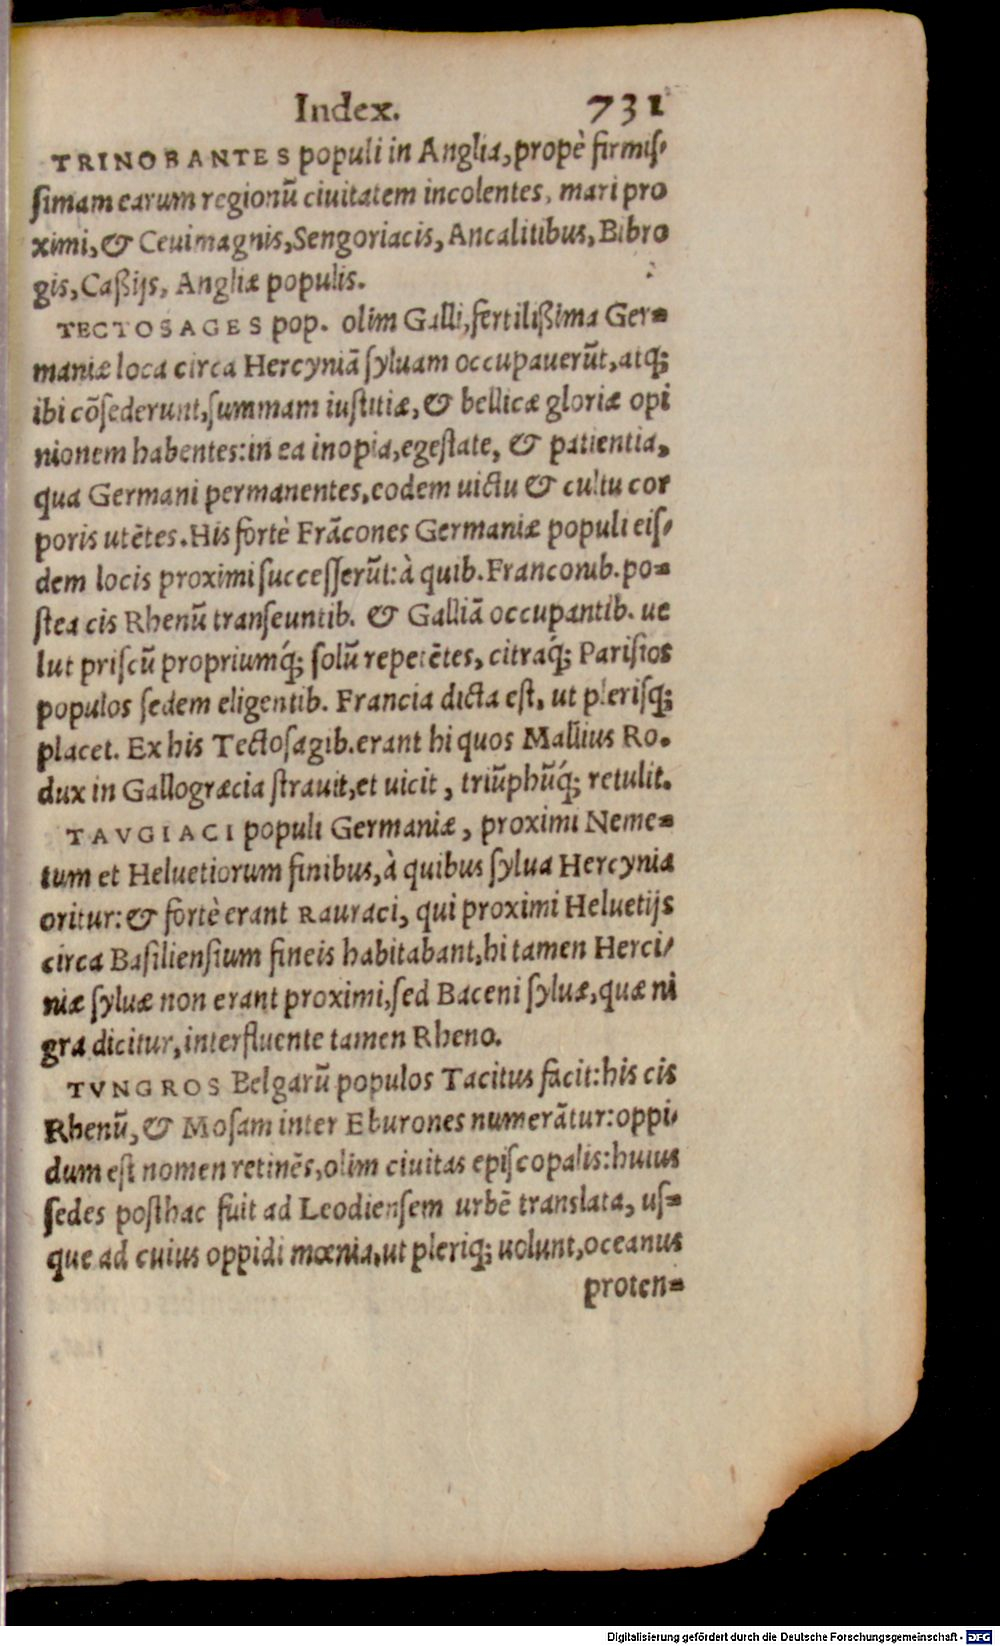 Index. 731
TRINOBANTES populi in Anglia, propè firmiſ-
ſimam earum regionũ ciuitatem incolentes, mari pro
ximi, & Ceuimagnis, Sengoriacis, Ancalitibus, Bibro
gis, Caßijs, Angliæ populis.
TECTOSAGES pop. olim Galli, fertilißima Ger-
maniæ loca circa Hercyniã ſyluam occupauerũt, atq;
ibi cõſederunt, ſummam iuſtitiæ, & bellicæ gloriæ opi
nionem habentes: in ea inopia, egeſtate, & patientia,
qua Germani permanentes, eodem uictu & cultu cor
poris utẽtes. His fortè Frãcones Germaniæ populi eiſ-
dem locis proximi ſucceſſerũt: à quib. Franconib. po-
ſtea cis Rhenũ tranſeuntib. & Galliã occupantib. ue
lut priſcũ propriumq́; ſolũ repetẽtes, citraq́; Pariſios
populos ſedem eligentib. Francia dicta eſt, ut pleriſq;
placet. Ex his Tectoſagib. erant hi quos Mallius Ro.
dux in Gallogræcia ſtrauit, et uicit, triũphũq́; retulit.
TAVGIACI populi Germaniæ, proximi Neme-
tum et Heluetiorum finibus, à quibus ſylua Hercynia
oritur: & fortè erant Rauraci, qui proximi Heluetijs
circa Baſilienſium fineis habitabant, hi tamen Herci-
niæ ſyluæ non erant proximi, ſed Baceni ſyluæ, quæ ni
gra dicitur, interfluente tamen Rheno.
TVNGROS Belgarũ populos Tacitus facit: his cis
Rhenũ, & Moſam inter Eburones numerãtur: oppi-
dum eſt nomen retinẽs, olim ciuitas epiſcopalis: huius
ſedes poſthac fuit ad Leodienſem urbẽ translata, uſ-
que ad cuius oppidi mœnia, ut pleriq; uolunt, oceanus
proten-
Digitalisierung gefördert durch die Deutsche Forschungsgemeinschaft - DFG